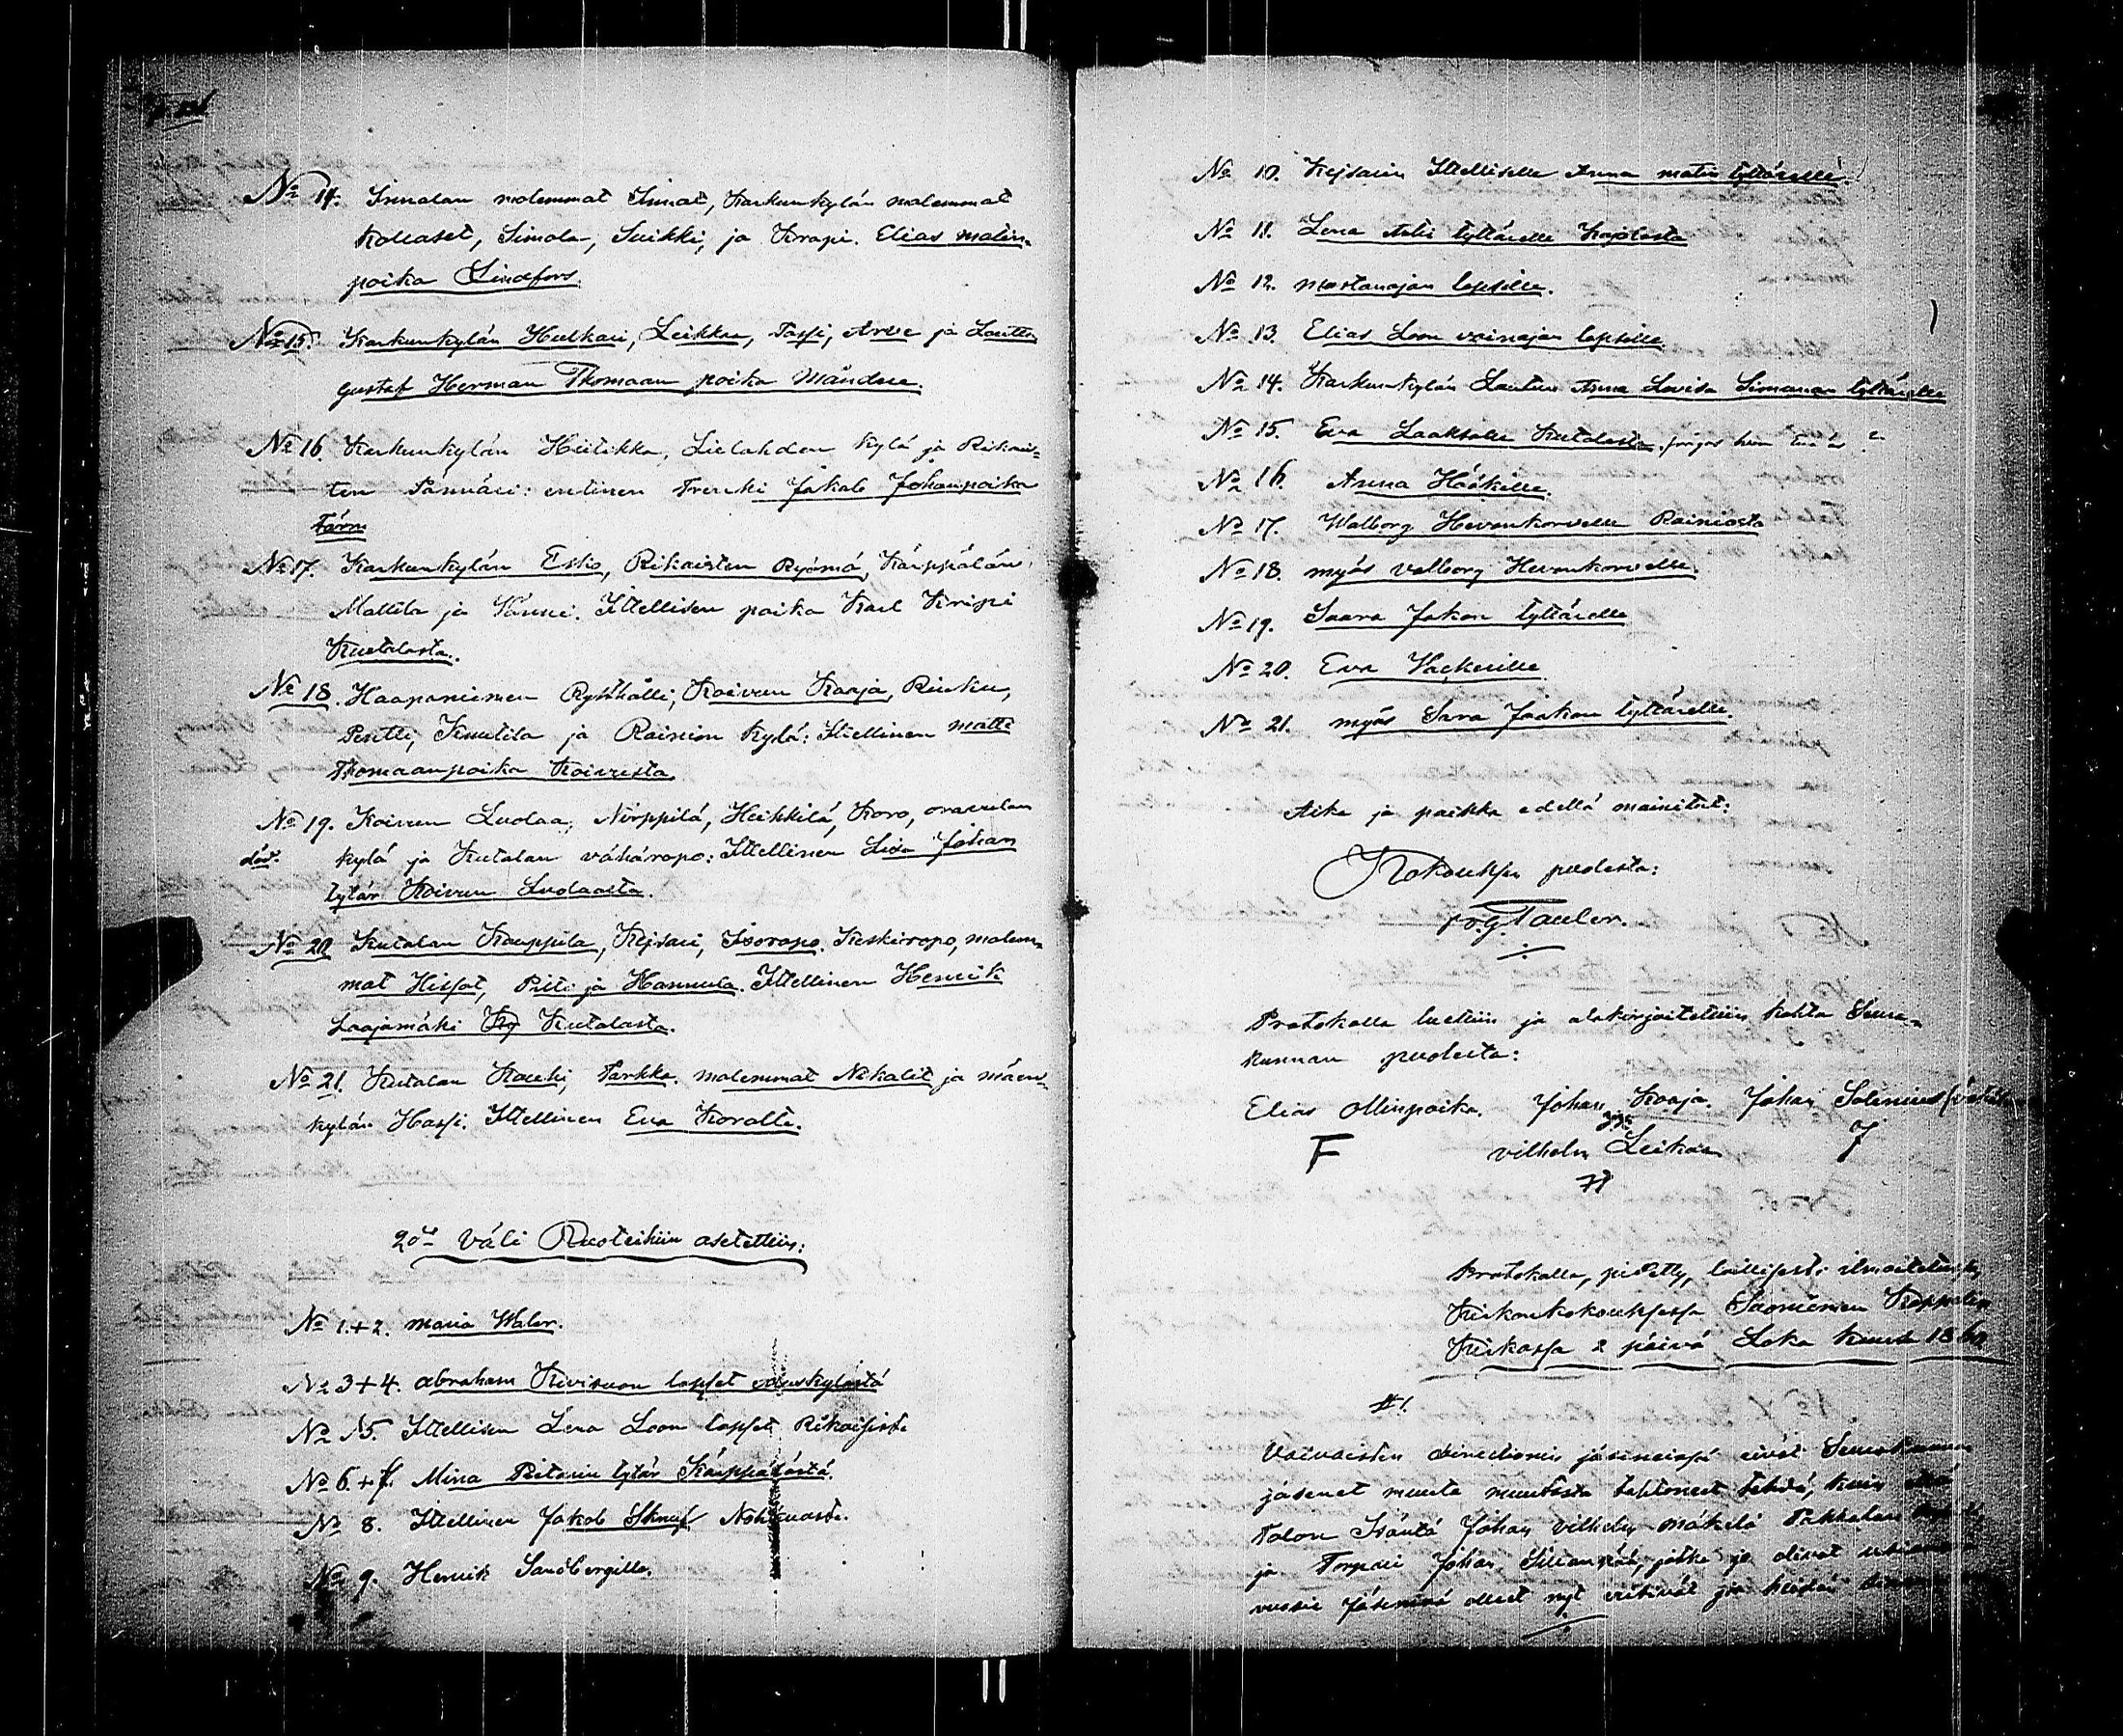 No 14. Simolan molemmat Simat, Karkunkylän molemmat
Kollaset, Simola, Suikki, ja Krapi. Elias matin-
poika Lindfors.
No 15. Karkunkylän Hulkari, Leikkaa, Passi, Arve ja Lautta
Gustaf Herman Thomaan poika
No 16. Karkunkylän Heitikka, Lielahden Kylä ja Rikais-
ten Pännäri: entinen Trenki Jakob Johanpoika
Färm
No 17. Karkunkylän Esko, Rikaisten Ryömä, Kärppälän
Mattila ja Vänni. Itellisen poika Karl Kripi
Kutalasta.
No 18. Haapaniemen Koivun Kaaja, Rinku,
Pentti, Knutila ja Rainion Kylä: Itellinen Matti
Thomaanpoika Koivusta
No 19. Koivun Ludaa, Nirppilä, Heikkilä, Koro,
död. kylä ja Kutalan vähäropo: Itellinen Lisa Johan
tytär Koivun Ludaasta.
No 20 Kutalan Kauppila, Kejsari, Isoropo, Keskiropo, molem-
mat Hissat, Piti ja Hannula. Itellinen Henrik
Laajamäki Ky Kutalasta.
No 21. Kutalan Kouki, Parkka, molemmat Nikalit ja mäen-
kylän Hassi. Itellinen Eva Koralli.
2or Väli Ruoteihiin asetettiin:
No 1.+2. Maria Waler.
No 3+4. Abraham Kivisuon lapset
No 5. Itellisen Lena Loon lapset Rikaisista
No 6.+7. Mina Pitarin tytär Kärppälästä.
No 8. Itellinen Jakob
No 9. Henrik Sandbergille.
No 10. Kejsarin Itelliselle Anna matin tyttärelle.
No 11. Lena Antin tyttärelle
No 12. lapsille.
No 13. Elias Loon vainajan lapsille.
No 14. Karkunkylän Lautun Anna Lovisa Simonan tyttärelle
No 15. Eva Laaksolle Kutalasta.
No 16. Anna Hääkille.
No 17. Walborg Hevonkorvelle Rainiosta
No 18. myös valborg Hevonkorvelle.
No 19. Saara Jakon tyttärelle
No 20. Eva Vackerille
No 21. myös Sara Jaakon tyttärelle.
Aika ja paikka edellä mainitut:
Kokouksen puolesta:
F.G. Tauler.
Protokolla luettiin ja alakirjoitettiin kohta Seura-
kunnan puolesta:
Elias Ollinpoika. Johan Kaaja. Johan Salenius
F vilhelm Leikas J
Protokolla, pidetty, laillisesti ilmoitetussa
Kirkonkokouksessa Suoniemen Kappelin
Kirkossa 2 päivä Loka kuusa
§ 1.
Vaivaisten direktionin jäseneissä eivät Seurakunnan
jäsenet muuta muutosta tahtoneet tehdä, kuin että
Talon Isäntä Johan Vilhelm Mäkelä Pakkalan
ja Torpari Johan jotka jo olivat
jäseninä olleet nyt erisivät ja heidän